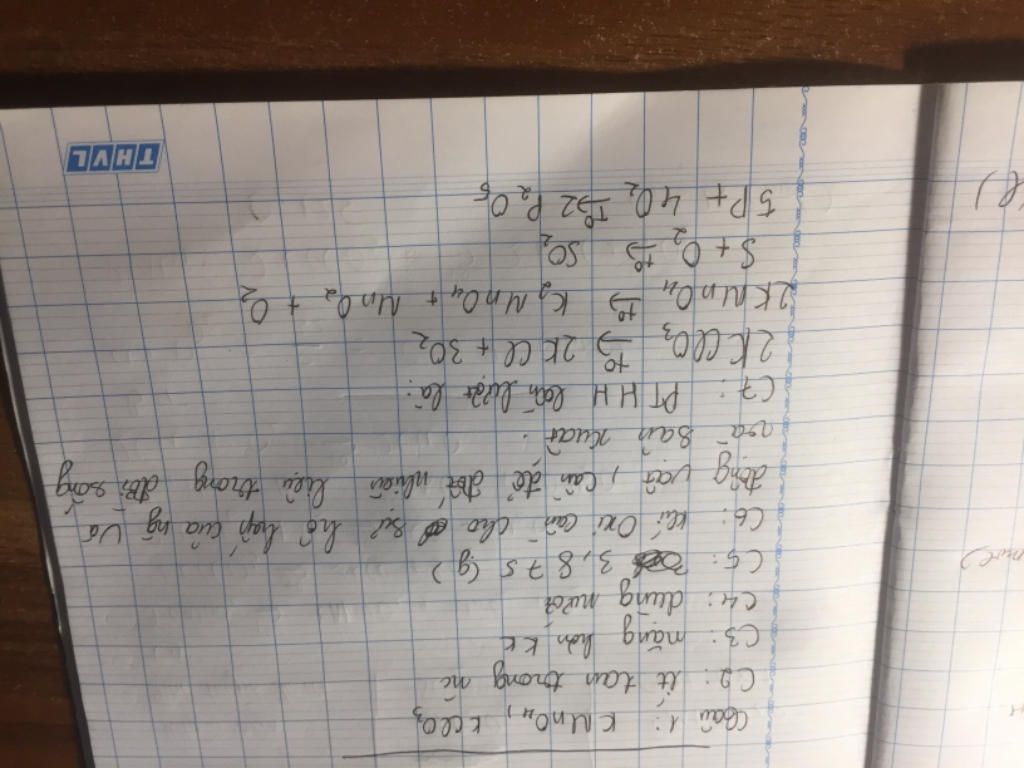 Câu 1: KMnO4, KClO3
C2: ít tan trong nc
C3: nặng hơn KK
C4: dùng nước
C5: 3,875 (g)
C6: khí Oxi cần cho sự hô hấp của ng và
động vật, cần để đốt nhiên liệu trong đời sống
và sản xuất.
C7: PTHH lần lượt là:
2KClO3 t°→ 2KCl + 3O2
2KMnO4 t°→ K2MnO4 + MnO2 + O2
S + O2 t°→ SO2
5P + 4O2 t°→ 2P2O5
THVL